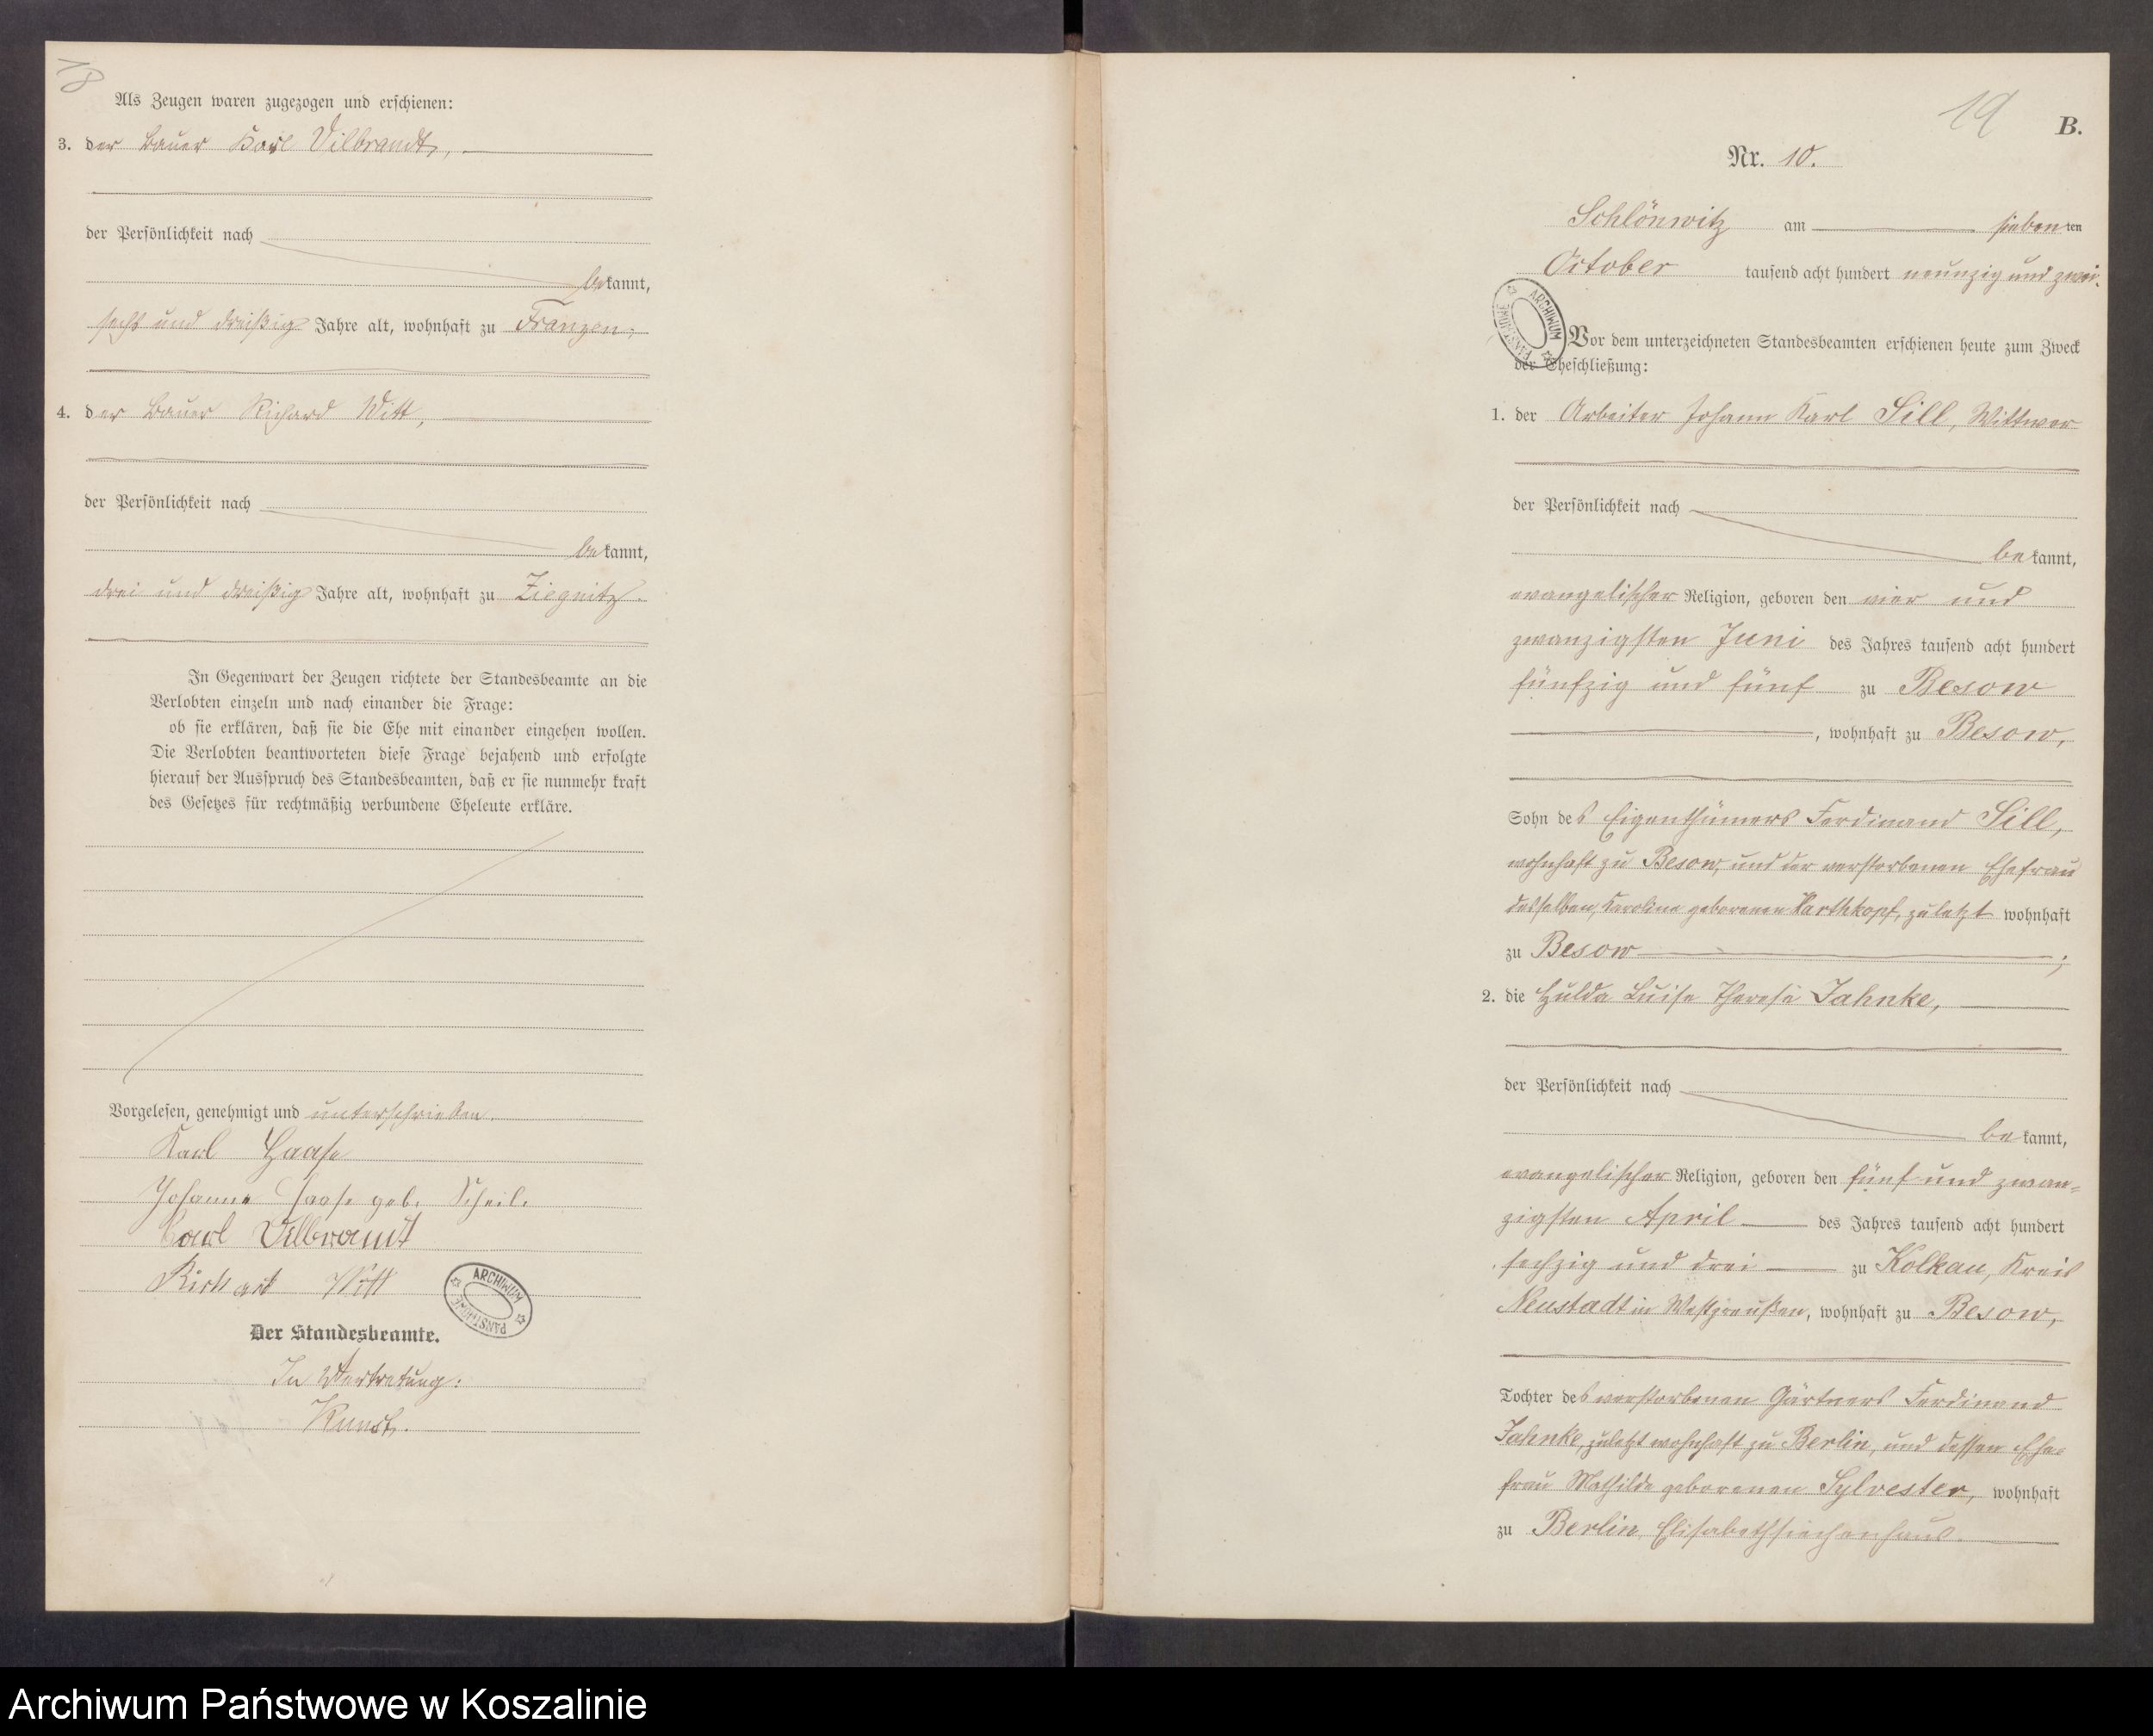 18
Als Zeugen waren zugezogen und erschienen:
3. der Bauer Karl Vilbrandt,
der Persönlichkeit nach
bekannt,
sechs und dreißig Jahre alt, wohnhaft zu Franzen;
4. der Bauer Richard Witt,
der Persönlichkeit nach
bekannt,
drei und dreißig Jahre alt, wohnhaft zu Ziegnitz.
In Gegenwart der Zeugen richtete der Standesbeamte an die
Verlobten einzeln und nach einander die Frage:
ob sie erklären, daß sie die Ehe mit einander eingehen wollen.
Die Verlobten beantworteten diese Frage bejahend und erfolgte
hierauf der Ausspruch des Standesbeamten, daß er sie nunmehr kraft
des Gesetzes für rechtmäßig verbundene Eheleute erkläre.
Vorgelesen, genehmigt und unterschrieben.
Karl Haase
Johanne Haase geb. Scheil.
Carl Vilbrandt
Richard Witt
ARCHIWUM PAŃSTWOWE
Der Standesbeamte.
In Vertretung:
Kunst.
19
B.
Nr. 10.
Schlönwitz am siebenten
October tausend acht hundert neunzig und zwei.
ARCHIWUM PAŃSTWOWE
Vor dem unterzeichneten Standesbeamten erschienen heute zum Zweck
der Eheschließung:
1. der Arbeiter Johann Karl Sill, Wittwer
der Persönlichkeit nach
bekannt,
evangelischer Religion, geboren den vier und
zwanzigsten Juni des Jahres tausend acht hundert
fünfzig und fünf zu Besow
, wohnhaft zu Besow,
Sohn des Eigenthümers Ferdinand Sill,
wohnhaft zu Besow, und der verstorbenen Ehefrau
desselben, Karoline geborenen Karthkopf, zuletzt wohnhaft
zu Besow ;
2. die Hulda Luise Therese Jahnke,
der Persönlichkeit nach
bekannt,
evangelischer Religion, geboren den fünf und zwan-
zigsten April des Jahres tausend acht hundert
sechzig und drei zu Kolkau, Kreis
Neustadt in Westpreußen, wohnhaft zu Besow,
Tochter des verstorbenen Gärtners Ferdinand
Jahnke, zuletzt wohnhaft zu Berlin, und dessen Ehe-
frau Mathilde geborenen Sylvester, wohnhaft
zu Berlin, Elisabethsiechenhaus.
Archiwum Państwowe w Koszalinie